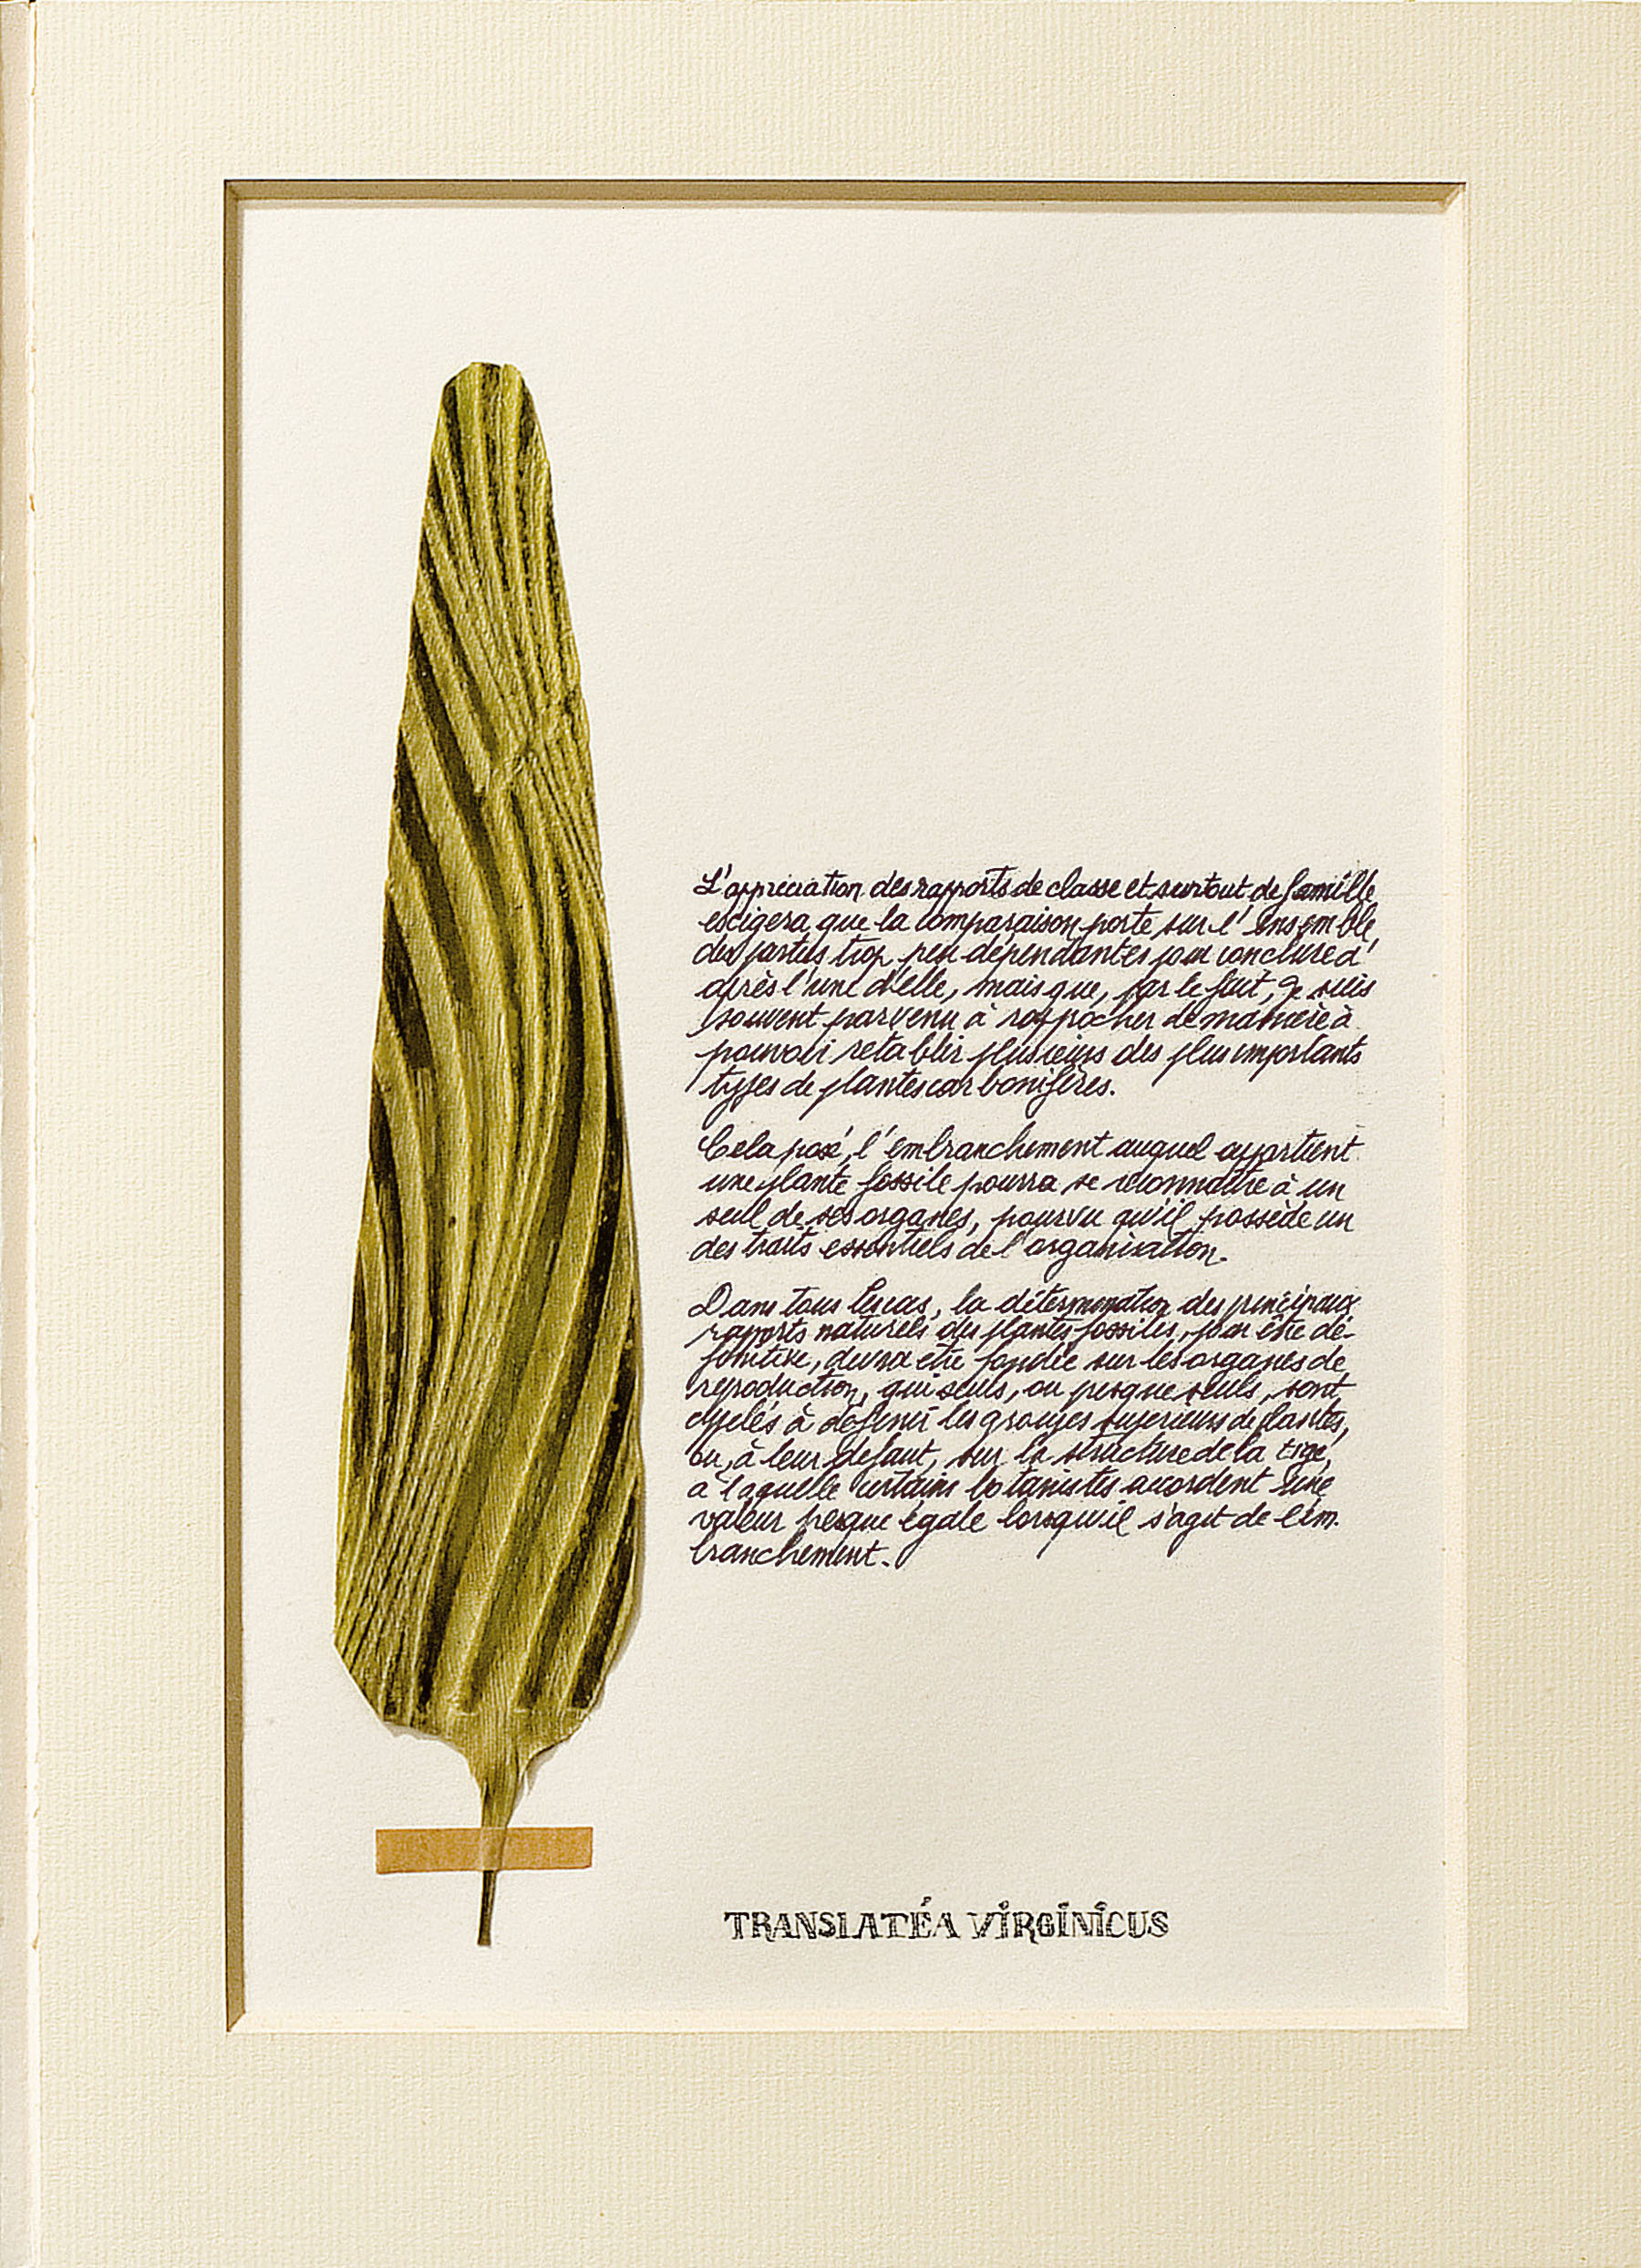 L'appréciation des rapports de classe et surtout de famille
escigera que la comparaison porte sur l'ensemble
des parties trop peu dépendantes pour conclure d'
après l'une d'elle, mais que, par le fait, je suis
souvent parvenu à rapprocher de manière à
pouvoir retablir plusieurs des plus importants
types de plantes carbonifères.
Cela posé, l'embranchement auquel appartient
une plante fossile pourra se reconnaître à un
seul de ses organes, pourvu qu'il possède un
des traits essentiels de l'organisation.
Dans tous les cas, la détermination des principaux
rapports naturels des plantes fossiles, pour être dé-
finitive, devra etre fondée sur les organes de
reproduction, qui seuls, ou presque seuls, sont
à définir les groupes superieurs de plantes,
ou, à leur defaut, sur la structure de la tige,
à laquelle certains botanistes accordent une
valeur presque égale lorsqu'il s'agit de l'em-
branchement.
TRANSLATÉA VIRGINICUS